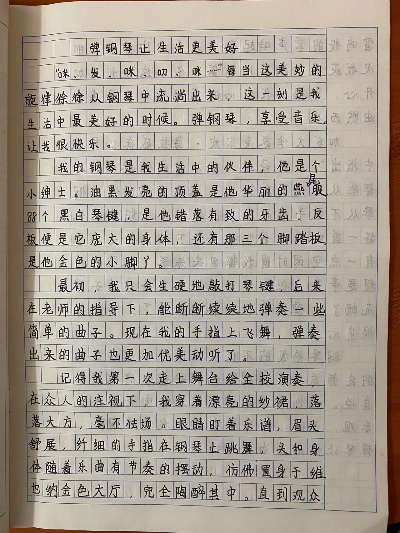 弹钢琴让生活更美好
"咪、发、咪叨咪……"每当这美妙的
旋律徐徐从钢琴中流淌出来，这一刻是我
生活中最美好的时候。弹钢琴，享受音乐
让我很快乐。
我的钢琴是我生活中的伙伴，他是个
小绅士。油黑发亮的顶盖是他华丽的燕尾服
88个黑白琴键，是他错落有致的牙齿，反
板便是它庞大的身体，还有那三个脚踏板
是他金色的小脚丫。
最初，我只会生硬地敲打琴键，后来
在老师的指导下，能断断续续地弹奏一些
简单的曲子。现在我的手指上飞舞，弹奏
出来的曲子也更加优美动听了
记得我第一次走上舞台给全校演奏
在众人的注视下，我穿着漂亮的纱裙，落
落大方，毫不怯场。眼睛盯着乐谱，眉头
舒展，纤细的手指在钢琴上跳舞，头和身
体随着乐曲有节奏的摆动，仿佛置身于维
也纳金色大厅，完全陶醉其中。直到观众